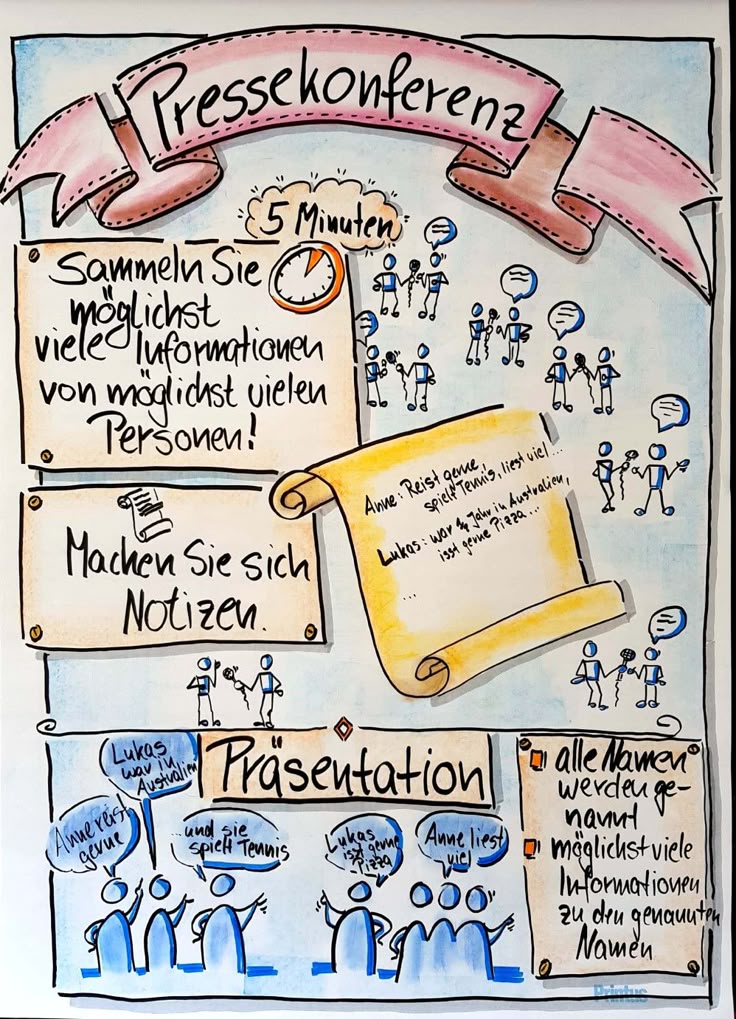 Pressekonferenz
5 Minuten
Sammeln Sie
möglichst
viele Informationen
von möglichst vielen
Personen!
Anne: Reist gerne
spielt Tennis, liest viel...
Lukas: war ½ Jahr in Australien,
isst gerne Pizza...
...
Machen Sie sich
Notizen.
Präsentation
Lukas
war in
Australien
Anne reist
gerne
...und sie
spielt Tennis
Lukas
isst gerne
Pizza
Anne liest
viel
alle Namen
werden ge-
nannt
möglichst viele
Informationen
zu den genannten
Namen
Printus